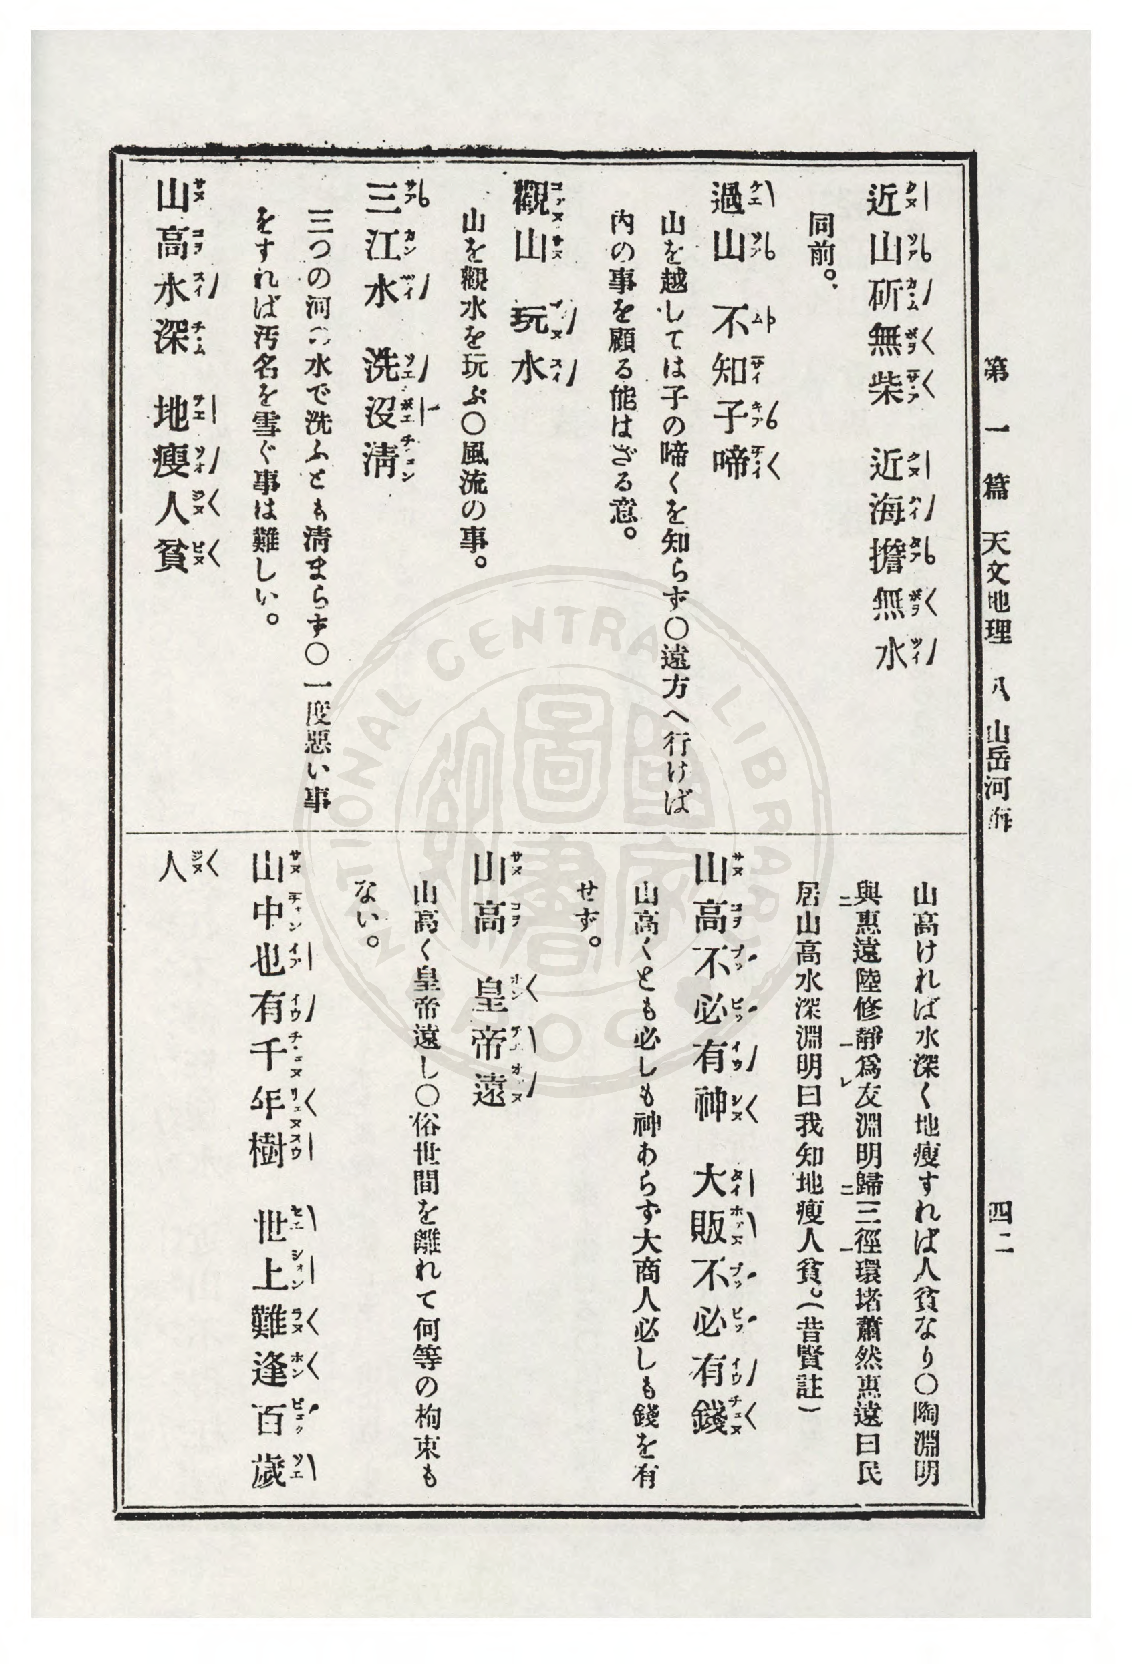 第一篇 天文地理 八 山岳河海
四二
近山斫無柴 近海擔無水
同前。
過山 不知子啼
山を越しては子の啼くを知らず〇遠方へ行けば
內の事を顧る能はざる意。
觀山 玩水
山を觀水を玩ぶ〇風流の事。
三江水 洗沒淸
三つの河の水で洗ふとも淸まらず〇一度惡い事
をすれば汚名を雪ぐ事は難しい。
山高水深 地瘦人貧
山高ければ水深く地瘦すれば人貧なり〇陶淵明
與惠遠陸修靜爲友淵明歸三徑環堵蕭然惠遠曰民
居山高水深淵明曰我知地瘦人貧。(昔賢註)
山高不必有神 大販不必有錢
山高くとも必しも神あらず大商人必しも錢を有
せず。
山高 皇帝遠
山高く皇帝遠し〇俗世間を離れて何等の拘束も
ない。
山中也有千年樹 世上難逢百歲
人